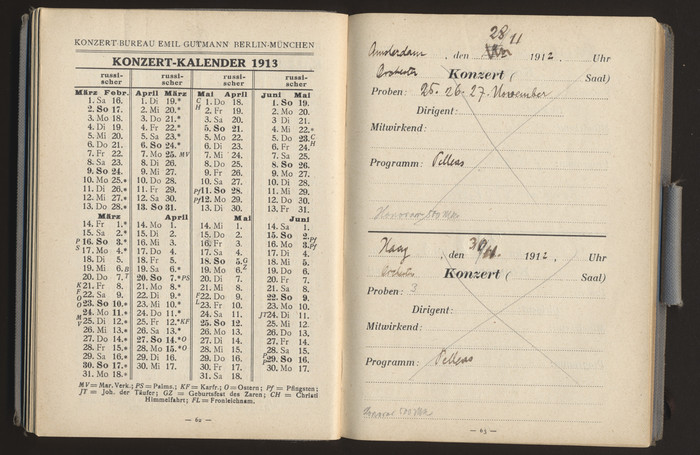 KONZERT-BUREAU EMIL GUTMANN BERLIN-MÜNCHEN
KONZERT-KALENDER 1913
russi-scher russi-scher russi-scher russi-scher
März Febr. April März Mai April Juni Mai
1. Sa 16. 1. Di 19.* C 1. Do 18. 1. So 19.
2. So 17. 2. Mi 20.* H 2. Fr 19. 2. Mo 20.
3. Mo 18. 3. Do 21.* 3. Sa 20. 3. Di 21.
4. Di 19. 4. Fr 22.* 4. So 21. 4. Mi 22.*
5. Mi 20. 5. Sa 23.* 5. Mo 22. 5. Do 23. C
6. Do 21. 6. So 24.* 6. Di 23. 6. Fr 24. H
7. Fr 22. 7. Mo 25. MV 7. Mi 24. 7. Sa 25.
8. Sa 23. 8. Di 26. 8. Do 25. 8. So 26.
9. So 24. 9. Mi 27. 9. Fr 26. 9. Mo 27.
10. Mo 25.* 10. Do 28. 10. Sa 27. 10. Di 28.
11. Di 26.* 11. Fr 29. Pf 11. So 28. 11. Mi 29.
12. Mi 27.* 12. Sa 30. Pf 12. Mo 29. 12. Do 30.
13. Do 28.* 13. So 31. 13. Di 30. 13. Fr 31.
März April Mai Juni
14. Fr 1.* 14. Mo 1. 14. Mi 1. 14. Sa 1.
15. Sa 2.* 15. Di 2. 15. Do 2. 15. So 2. Pf
P 16. So 3.* 16. Mi 3. 16. Fr 3. 16. Mo 3. Pf
S 17. Mo 4.* 17. Do 4. 17. Sa 4. 17. Di 4.
18. Di 5. 18. Fr 5. 18. So 5. G 18. Mi 5.
19. Mi 6. 19. Sa 6.* 19. Mo 6. Z 19. Do 6.
20. Do 7. 20. So 7.* PS 20. Di 7. 20. Fr 7.
K 21. Fr 8. 21. Mo 8.* 21. Mi 8. 21. Sa 8.
F 22. Sa 9. 22. Di 9.* F 22. Do 9. 22. So 9.
O 23. So 10.* 23. Mi 10.* L 23. Fr 10. 23. Mo 10.
O 24. Mo 11.* 24. Do 11.* 24. Sa 11. JT 24. Di 11.
M 25. Di 12.* 25. Fr 12.* KF 25. So 12. 25. Mi 12.
V 26. Mi 13.* 26. Sa 13.* 26. Mo 13. 26. Do 13.
27. Do 14.* 27. So 14.* O 27. Di 14. 27. Fr 14.
28. Fr 15.* 28. Mo 15.* O 28. Mi 15. 28. Sa 15.
29. Sa 16.* 29. Di 16. 29. Do 16. P 29. So 16.
30. So 17.* 30. Mi 17. 30. Fr 17. 30. Mo 17.
31. Mo 18.* 31. Sa 18.
MV = Mar. Verk.; PS = Palms.; KF = Karfr.; O = Ostern; Pf = Pfingsten;
JT = Joh. der Täufer; GZ = Geburtsfest des Zaren; CH = Christi
Himmelfahrt; FL = Fronleichnam.
— 62 —
28
11
Amsterdam, den 1912, Uhr
Orchester Konzert ( Saal)
Proben: 25. 26. 27. November
Dirigent:
Mitwirkend:
Programm: Pelleas
Honorar
Haag, den 30/11. 1912, Uhr
Orchester Konzert ( Saal)
Proben: 3
Dirigent:
Mitwirkend:
Programm: Pelleas
Honorar
— 63 —